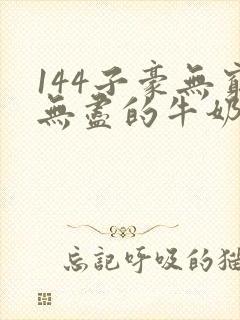 144子豪無窮
無盡的牛奶
忘記呼吸的貓